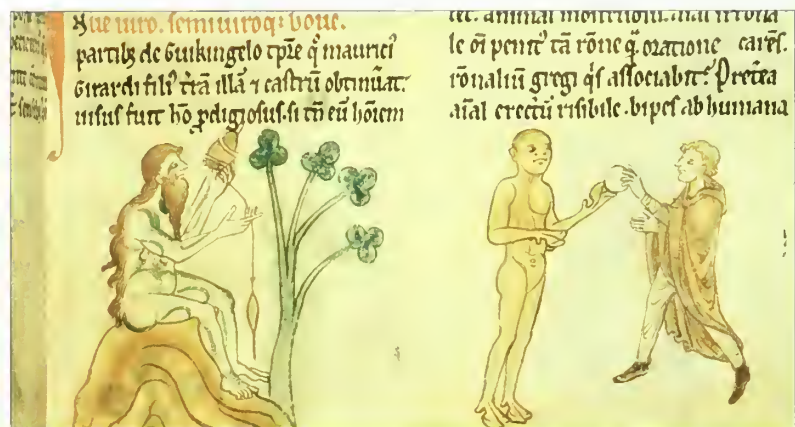 ue uiro. semiuiroq; boue.
partib; de Guikingelo tp̄re q̄ mauricī
Girardi filī t̄rā illā ⁊ castrū obtinūat.
uisus fuit hō p̱digiosus. si tn̄ eū hōiem
animal monstruosū.
le oī penit᷒ tā rōne q̄ oratione carēs.
rōnaliū gregi q̄s associabit? Pretea
aīal erectū risibile. bipes ab humana